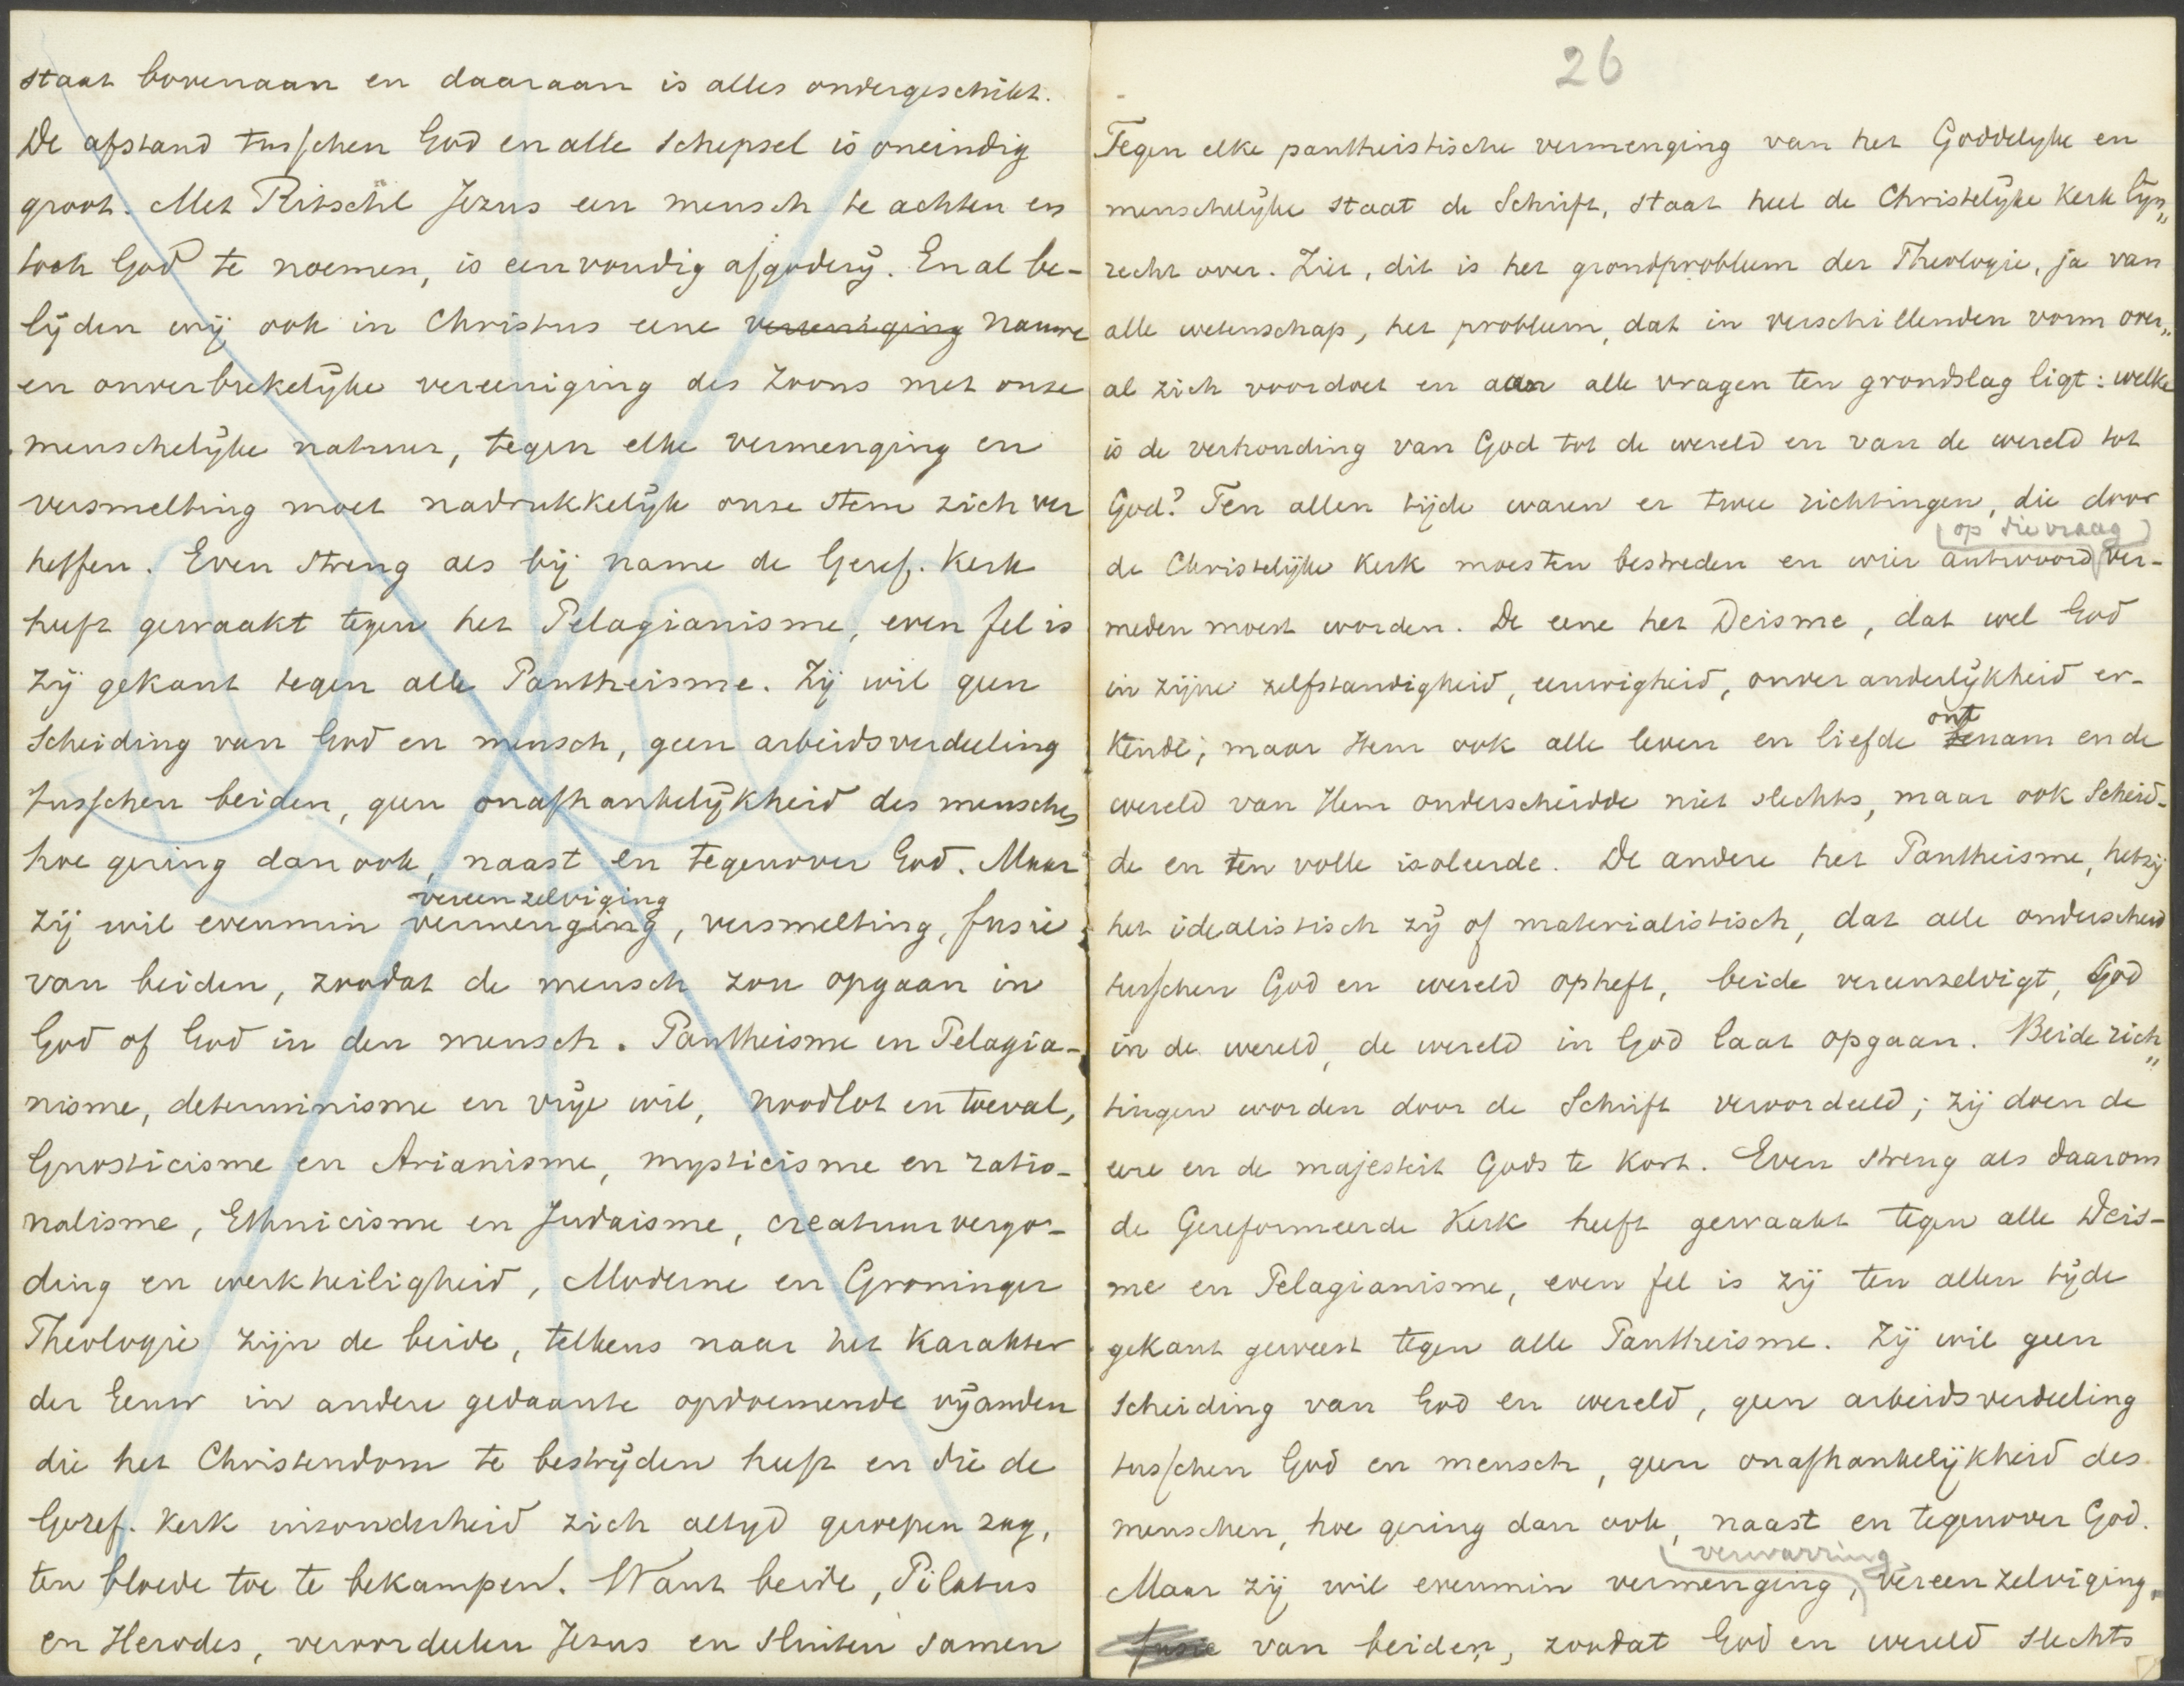 staat bovenaan en daaraan is alles ondergeschikt.
De afstand tusschen God en alle schepsel is oneindig
groot. Met Ritschl Jezus een mensch te achten en
toch God te noemen, is eenvoudig afgodery. En al be-
lyden wij ook in Christus eene vereeniging nauwe
en onverbrekelyke vereeniging des Zoons met onze
menschelyke natuur, tegen elke vermenging en
versmelting moet nadrukkelyk onze stem zich ver
heffen. Even streng als bij name de Geref. Kerk
heeft gewaakt tegen het Pelagianisme, even fel is
zij gekant tegen alle Pantheisme. Zij wil geen
scheiding van God en mensch, geen arbeidsverdeeling
tusschen beiden, geen onafhankelykheid des menschen
hoe gering dan ook, naast en tegenover God. Maar
vereenzelviging
zij wil evenmin vermenging, versmelting, fusie
van beiden, zoodat de mensch zou opgaan in
God of God in den mensch. Pantheisme en Pelagia-
nisme, determinisme en vrije wil, noodlot en toeval,
Gnosticisme en Arianisme, mysticisme en ratio-
nalisme, Ethnicisme en Judaisme, creatuurvergo-
ding en werkheiligheid, Moderne en Groninger
Theologie zijn de beide, telkens naar het karakter
der Eeuw in andere gedaante opdoemende vyanden
die het Christendom te bestryden heeft en die de
Geref. Kerk inzonderheid zich altyd geroepen zag,
ten bloede toe te bekampen. Want beide, Pilatus
en Herodes, veroordeelen Jezus en sluiten samen
26
Tegen elke pantheistische vermenging van het Goddelyke en
menschelyke staat de Schrift, staat heel de Christelyke Kerk lyn„
recht over. Ziet, dit is het grondprobleem der Theologie, ja van
alle wetenschap, het probleem, dat in verschillenden vorm over„
al zich voordoet en aan alle vragen ten grondslag ligt: welke
is de verhouding van God tot de wereld en van de wereld tot
God? Ten allen tijde waren er twee richtingen, die door
op die vraag
de Christelijke Kerk moesten bestreden en wier antwoord ver-
meden moest worden. De eene het Deisme, dat wel God
in zijne zelfstandigheid, eeuwigheid, onveranderlykheid er-
ont
kende; maar Hem ook alle leven en liefde benam en de
wereld van Hem onderscheidde niet slechts, maar ook scheid-
de en ten volle isoleerde. De andere het Pantheisme, hetzij
het idealistisch zy of materialistisch, dat alle onderscheid
tusschen God en wereld opheft, beide vereenzelvigt, God
in de wereld, de wereld in God laat opgaan. Beide rich„
tingen worden door de Schrift veroordeeld; zij doen de
eere en de majesteit Gods te kort. Even streng als daarom
de Gereformeerde Kerk heeft gewaakt tegen alle Deis-
me en Pelagianisme, even fel is zij ten allen tyde
gekant geweest tegen alle Pantheisme. Zij wil geen
scheiding van God en wereld, geen arbeidsverdeeling
tusschen God en mensch, geen onafhankelykheid des
menschen, hoe gering dan ook, naast en tegenover God.
verwarring
Maar zij wil evenmin vermenging, vereenzelviging,
fusie van beiden, zoodat God en wereld slechts